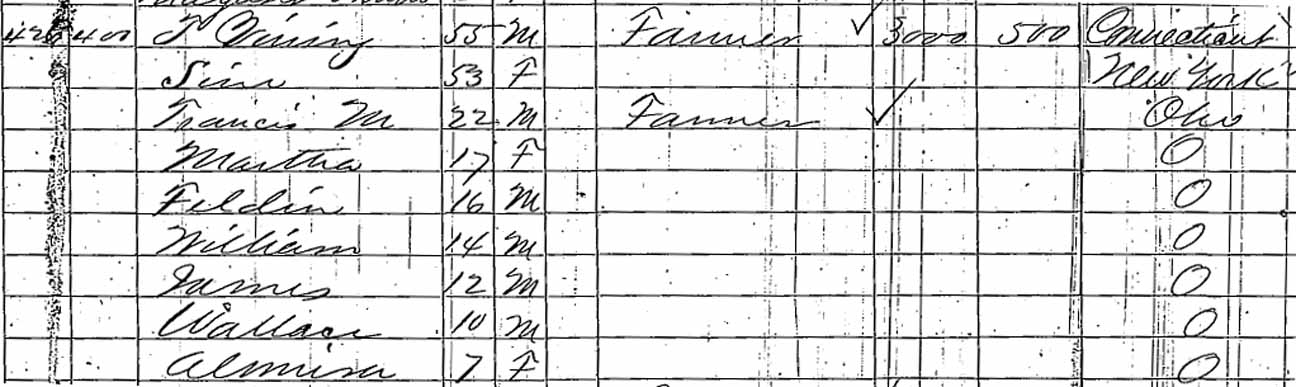 400 T Vining 55 M Farmer ✓ 3000 500 Connecticut
53 F New York
Francis M 22 M Farmer ✓ Ohio
Martha 17 F O
Feldin 16 M O
William 14 M O
James 12 M O
Wallace 10 M O
Almira 7 F O